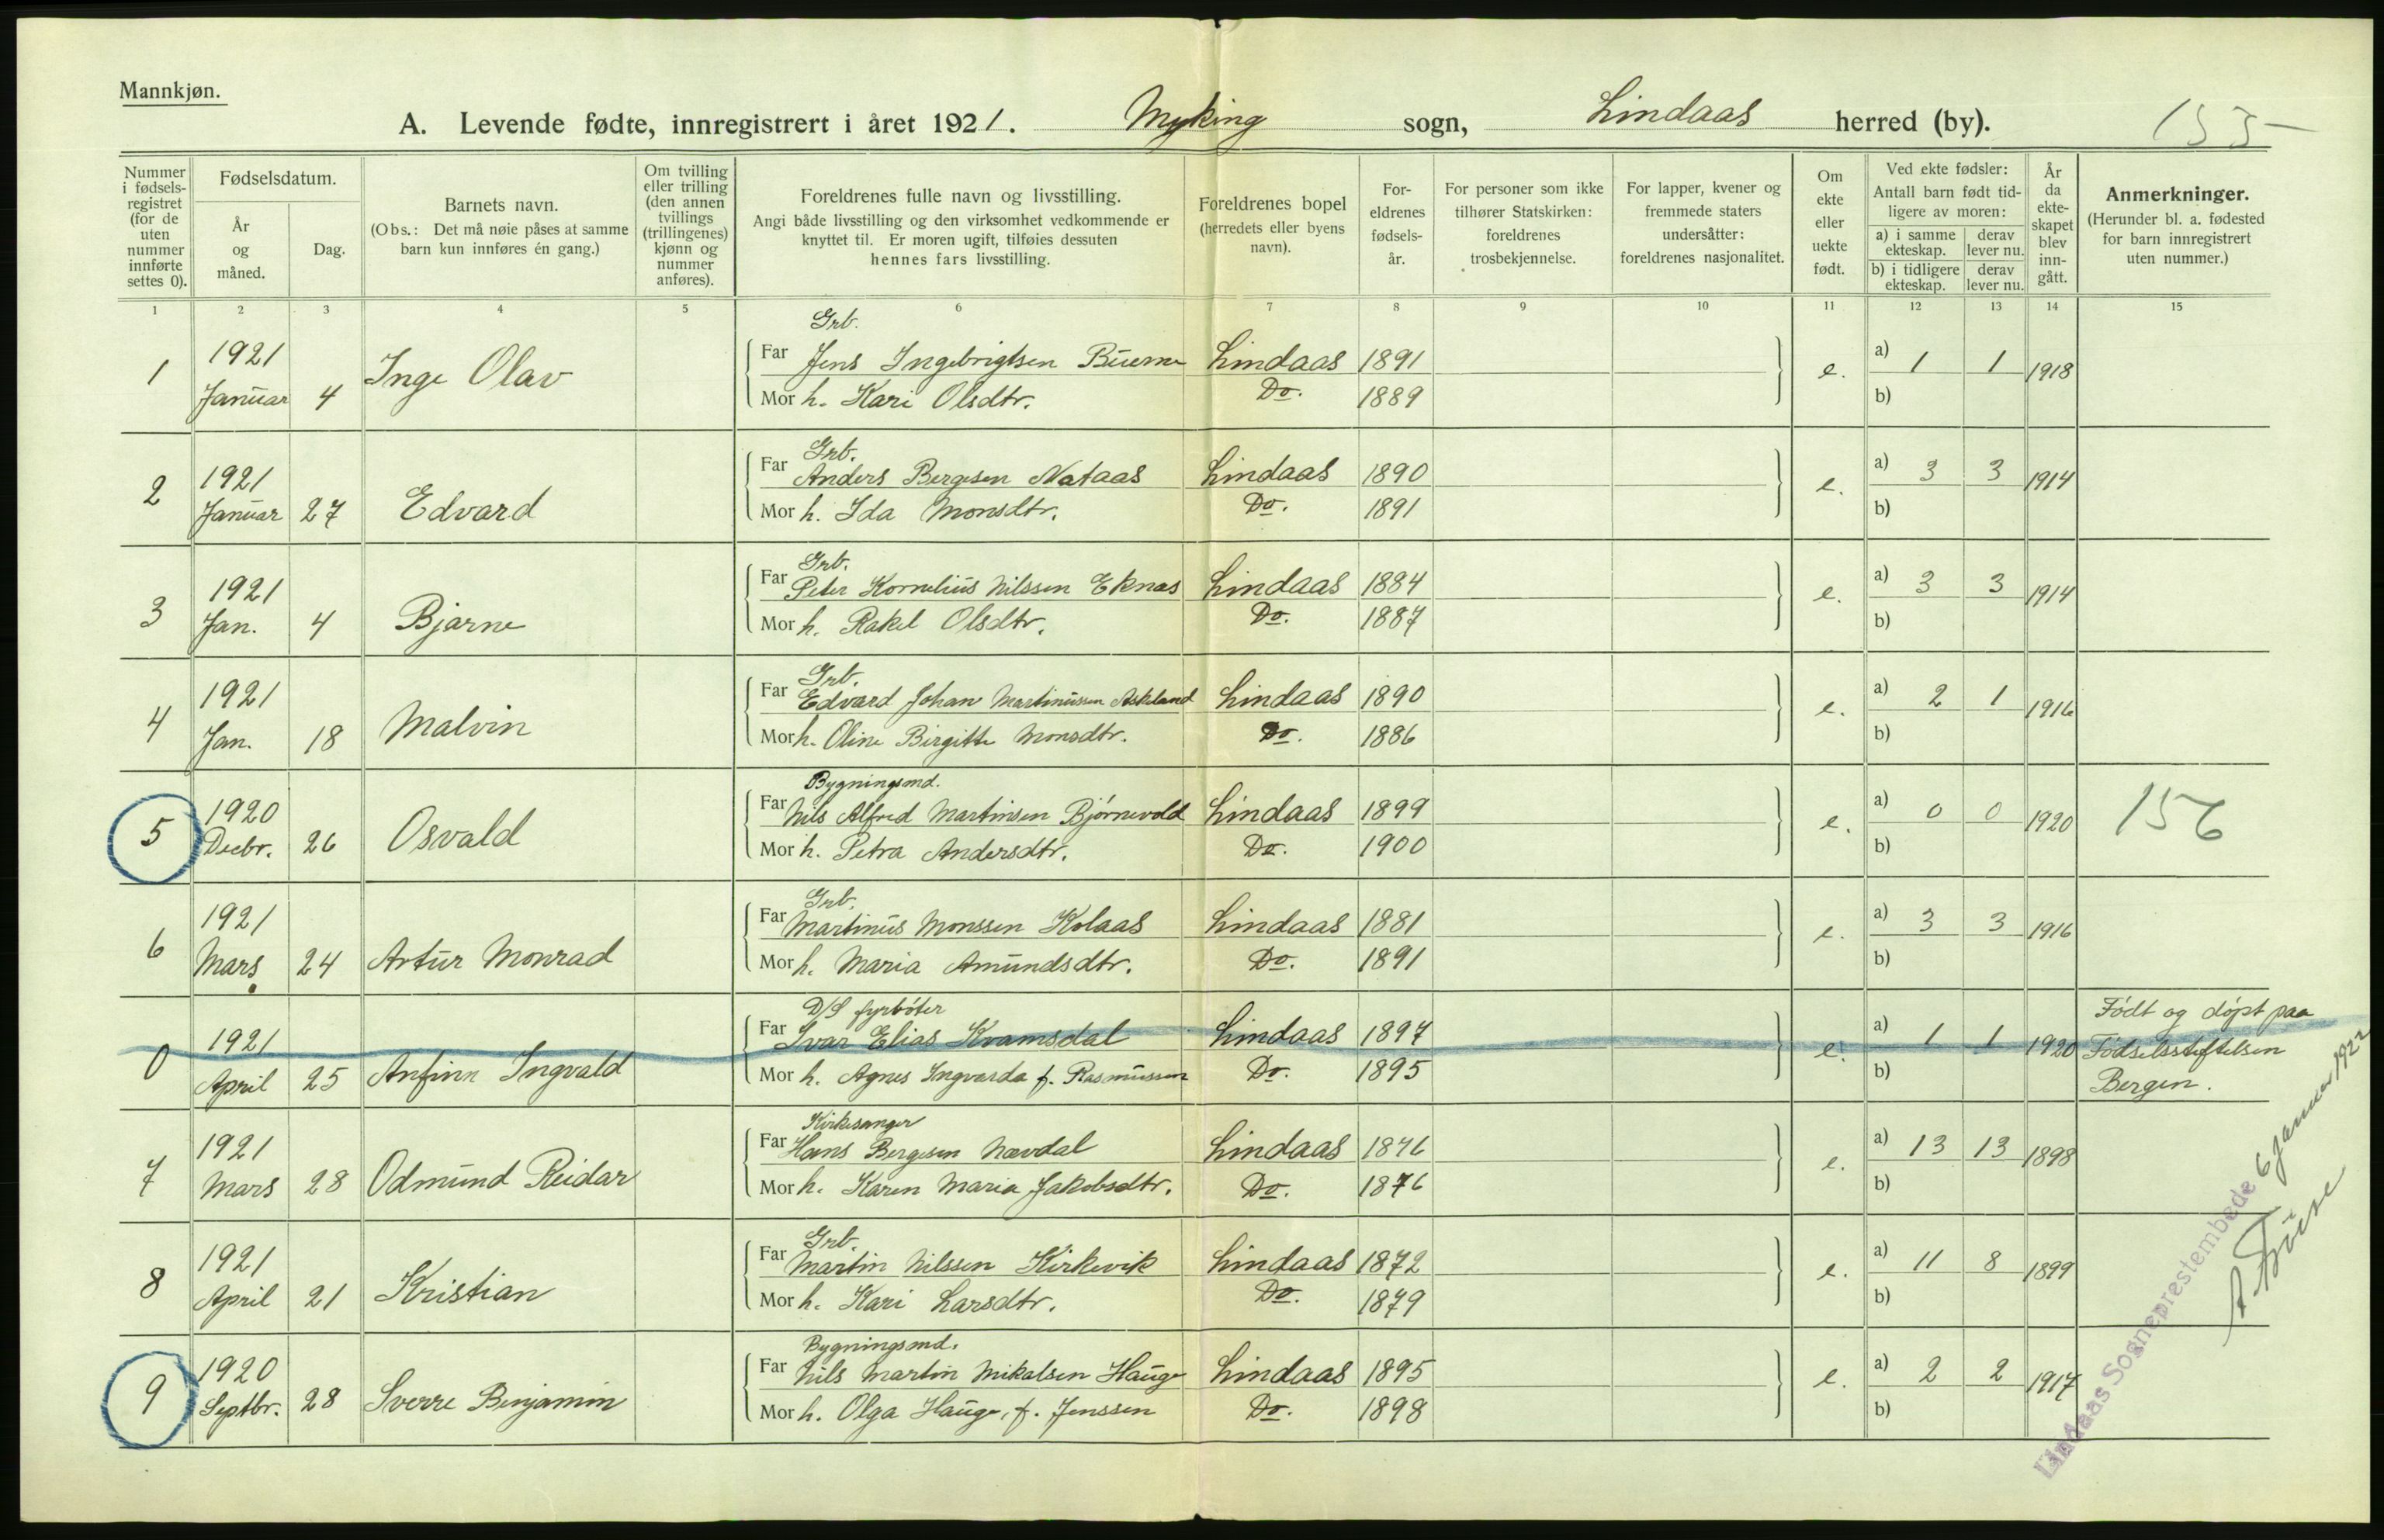 Mannkjøn.
A. Levende fødte, innregistrert i året 1921. Myking sogn, Lindaas herred (by). 155
Nummer i fødsels-registret (for de uten nummer innførte settes 0).
Fødselsdatum.
År og måned.
Dag.
Barnets navn.
(Obs.: Det må nøie påses at samme barn kun innføres én gang.)
Om tvilling eller trilling (den annen tvillings (trillingenes) kjønn og nummer anføres).
Foreldrenes fulle navn og livsstilling.
Angi både livsstilling og den virksomhet vedkommende er knyttet til. Er moren ugift, tilføies dessuten hennes fars livsstilling.
Foreldrenes bopel (herredets eller byens navn).
For-eldrenes fødsels-år.
For personer som ikke tilhører Statskirken: foreldrenes trosbekjennelse.
For lapper, kvener og fremmede staters undersåtter: foreldrenes nasjonalitet.
Om ekte eller uekte født.
Ved ekte fødsler:
Antall barn født tid-ligere av moren:
a) i samme ekteskap. derav lever nu.
b) i tidligere ekteskap. derav lever nu.
År da ekte-skapet blev inn-gått.
Anmerkninger.
(Herunder bl. a. fødested for barn innregistrert uten nummer.)
1 2 3 4 5 6 7 8 9 10 11 12 13 14 15
Grb.
1 1921 Far Jens Ingebrigtsen Lindaas 1891 e. a) 1 1 1918
Januar 4 Inge Olav Mor h. Kari Olsdtr. Do. 1889 b)
Grb.
2 1921 Far Anders Bergesen Nataas Lindaas 1890 e. a) 3 3 1914
Januar 27 Edvard Mor h. Ida Monsdtr. Do. 1891 b)
Grb.
3 1921 Far Peter Kornelius Nilssen Eknas Lindaas 1884 e. a) 3 3 1914
Jan. 4 Bjarne Mor h. Rakel Olsdtr. Do. 1887 b)
Grb.
4 1921 Far Edvard Johan Martinussen Askeland Lindaas 1890 e. a) 2 1 1916
Jan. 18 Malvin Mor h. Oline Birgitte Monsdtr. Do. 1886 b)
Bygningsmd.
5 1920 Far Nils Alfred Martinsen Bjørnevold Lindaas 1899 e. a) 0 0 1920 156
Decbr. 26 Osvald Mor h. Petra Andersdtr. Do. 1900 b)
Grb.
6 1921 Far Martinus Monssen Kolaas Lindaas 1881 e. a) 3 3 1916
Mars 24 Artur Monrad Mor h. Maria Amundsdtr. Do. 1891 b)
D/S fyrbøter
0 1921 Far Ivar Elias Kvamsdal Lindaas 1897 e. a) 1 1 1920 Født og døpt paa Fødselsstiftelsen Bergen.
April 25 Anfinn Ingvald Mor h. Agnes Ingvarda f. Rasmussen Do. 1895 b)
Kirkesanger
7 1921 Far Hans Bergesen Nævdal Lindaas 1876 e. a) 13 13 1898
Mars 28 Odmund Reidar Mor h. Karen Maria Jakobsdtr. Do. 1876 b)
Grb.
8 1921 Far Martin Nilssen Kirkevik Lindaas 1872 e. a) 11 8 1899
April 21 Kristian Mor h. Kari Larsdtr. Do. 1879 b)
Bygningsmd.
9 1920 Far Nils Martin Mikalsen Hauge Lindaas 1895 e. a) 2 2 1917
Septbr. 28 Sverre Benjamin Mor h. Olga Hauge, f. Jenssen Do. 1898 b)
Lindaas Sogneprestembede 6 januar 1922